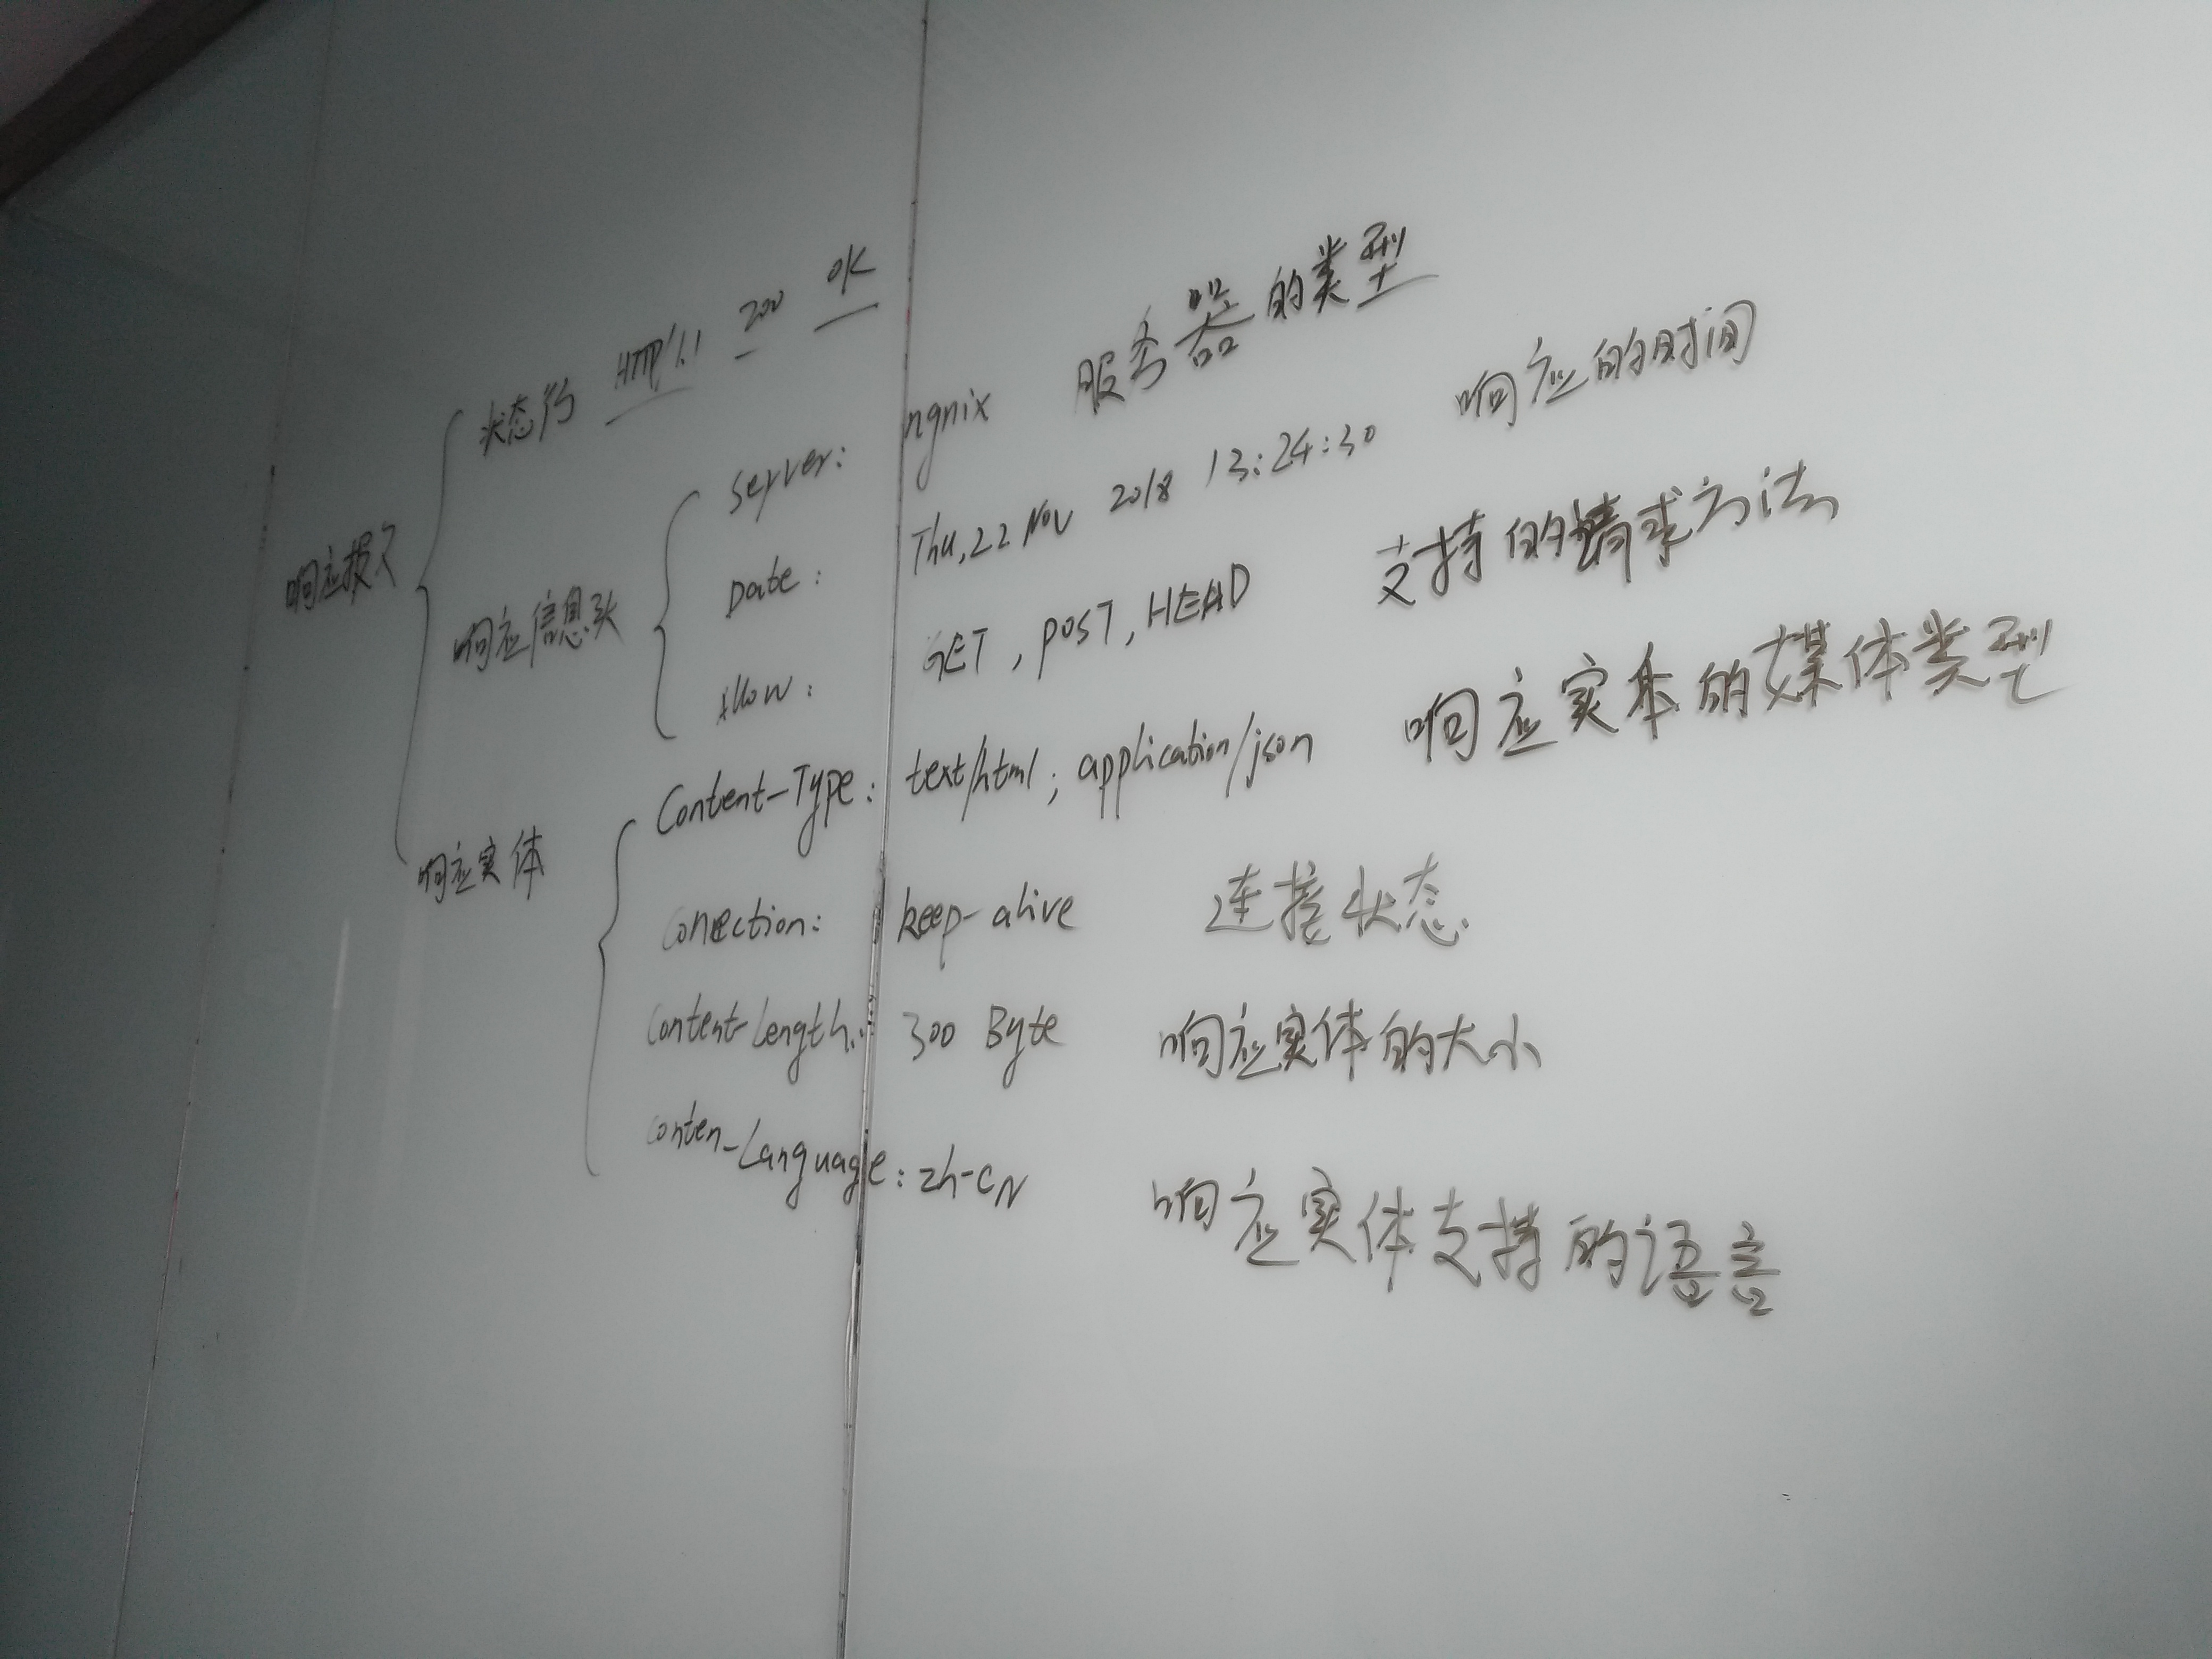 响应报文
状态行 HTTP/1.1 200 OK
响应信息头
Server: ngnix 服务器的类型
Date: Thu,22 Nov 2018 13:24:30 响应的时间
Allow: GET, POST, HEAD 支持的请求方法
响应实体
Content-Type: text/html; application/json 响应实体的媒体类型
Conection: keep-alive 连接状态
Content-Length: 300 Byte 响应实体的大小
Conten-Language: zh-CN 响应实体支持的语言